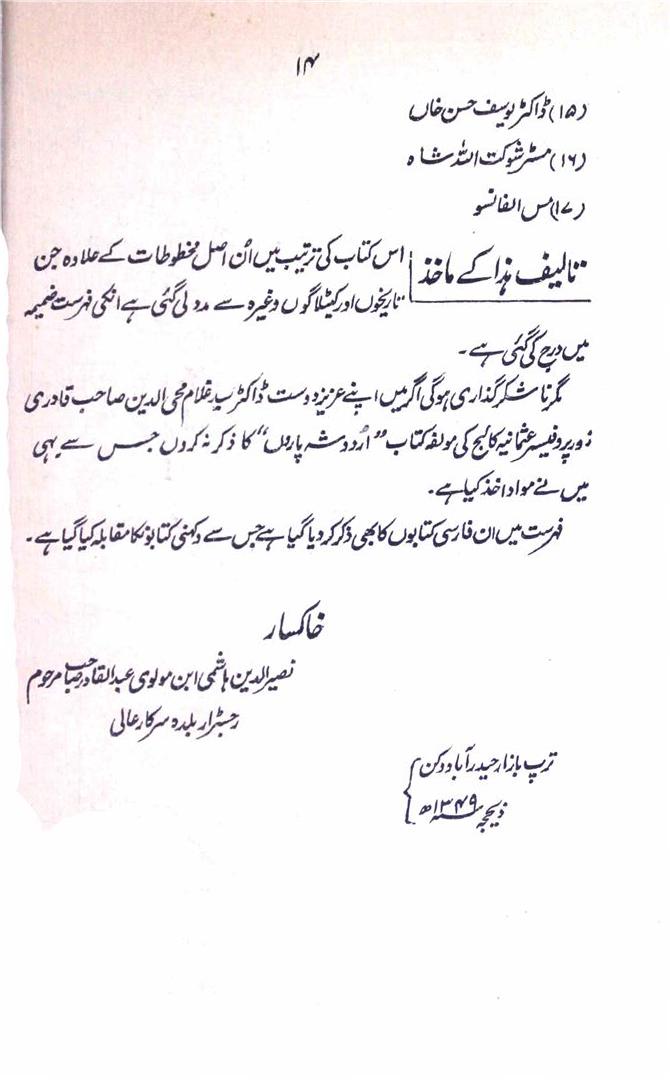 ۱۴
(۱۵) ڈاکٹر یوسف حسن خاں
(۱۶) مسٹر شوکت اللہ شاہ
(۱۷) مس الفانسو
تالیف ہذا کے ماخذ
اس کتاب کی ترتیب میں اُن اصل مخطوطات کے علاوہ جن
تاریخوں اور کیٹلاگوں وغیرہ سے مدد لی گئی ہے انکی فہرست ضمیمہ
میں درج کی گئی ہے۔
مگر ناشکر گذاری ہوگی اگر میں اپنے عزیز دوست ڈاکٹر سید غلام محی الدین صاحب قادری
زور پروفیسر عثمانیہ کالج کی مولفہ کتاب "اُردو شہ پاروں" کا ذکر نہ کروں جس سے بھی
میں نے مواد اخذ کیا ہے۔
فہرست میں ان فارسی کتابوں کا بھی ذکر کر دیا گیا ہے جس سے دکہنی کتابونکا مقابلہ کیا گیا ہے۔
خاکسار
نصیر الدین ہاشمی ابن مولوی عبد القادر صاحب مرحوم
رجسٹرار بلدہ سرکار عالی
ترپ بازار حیدرآباد دکن
ذیحجہ سنہ ۱۳۴۹ھ